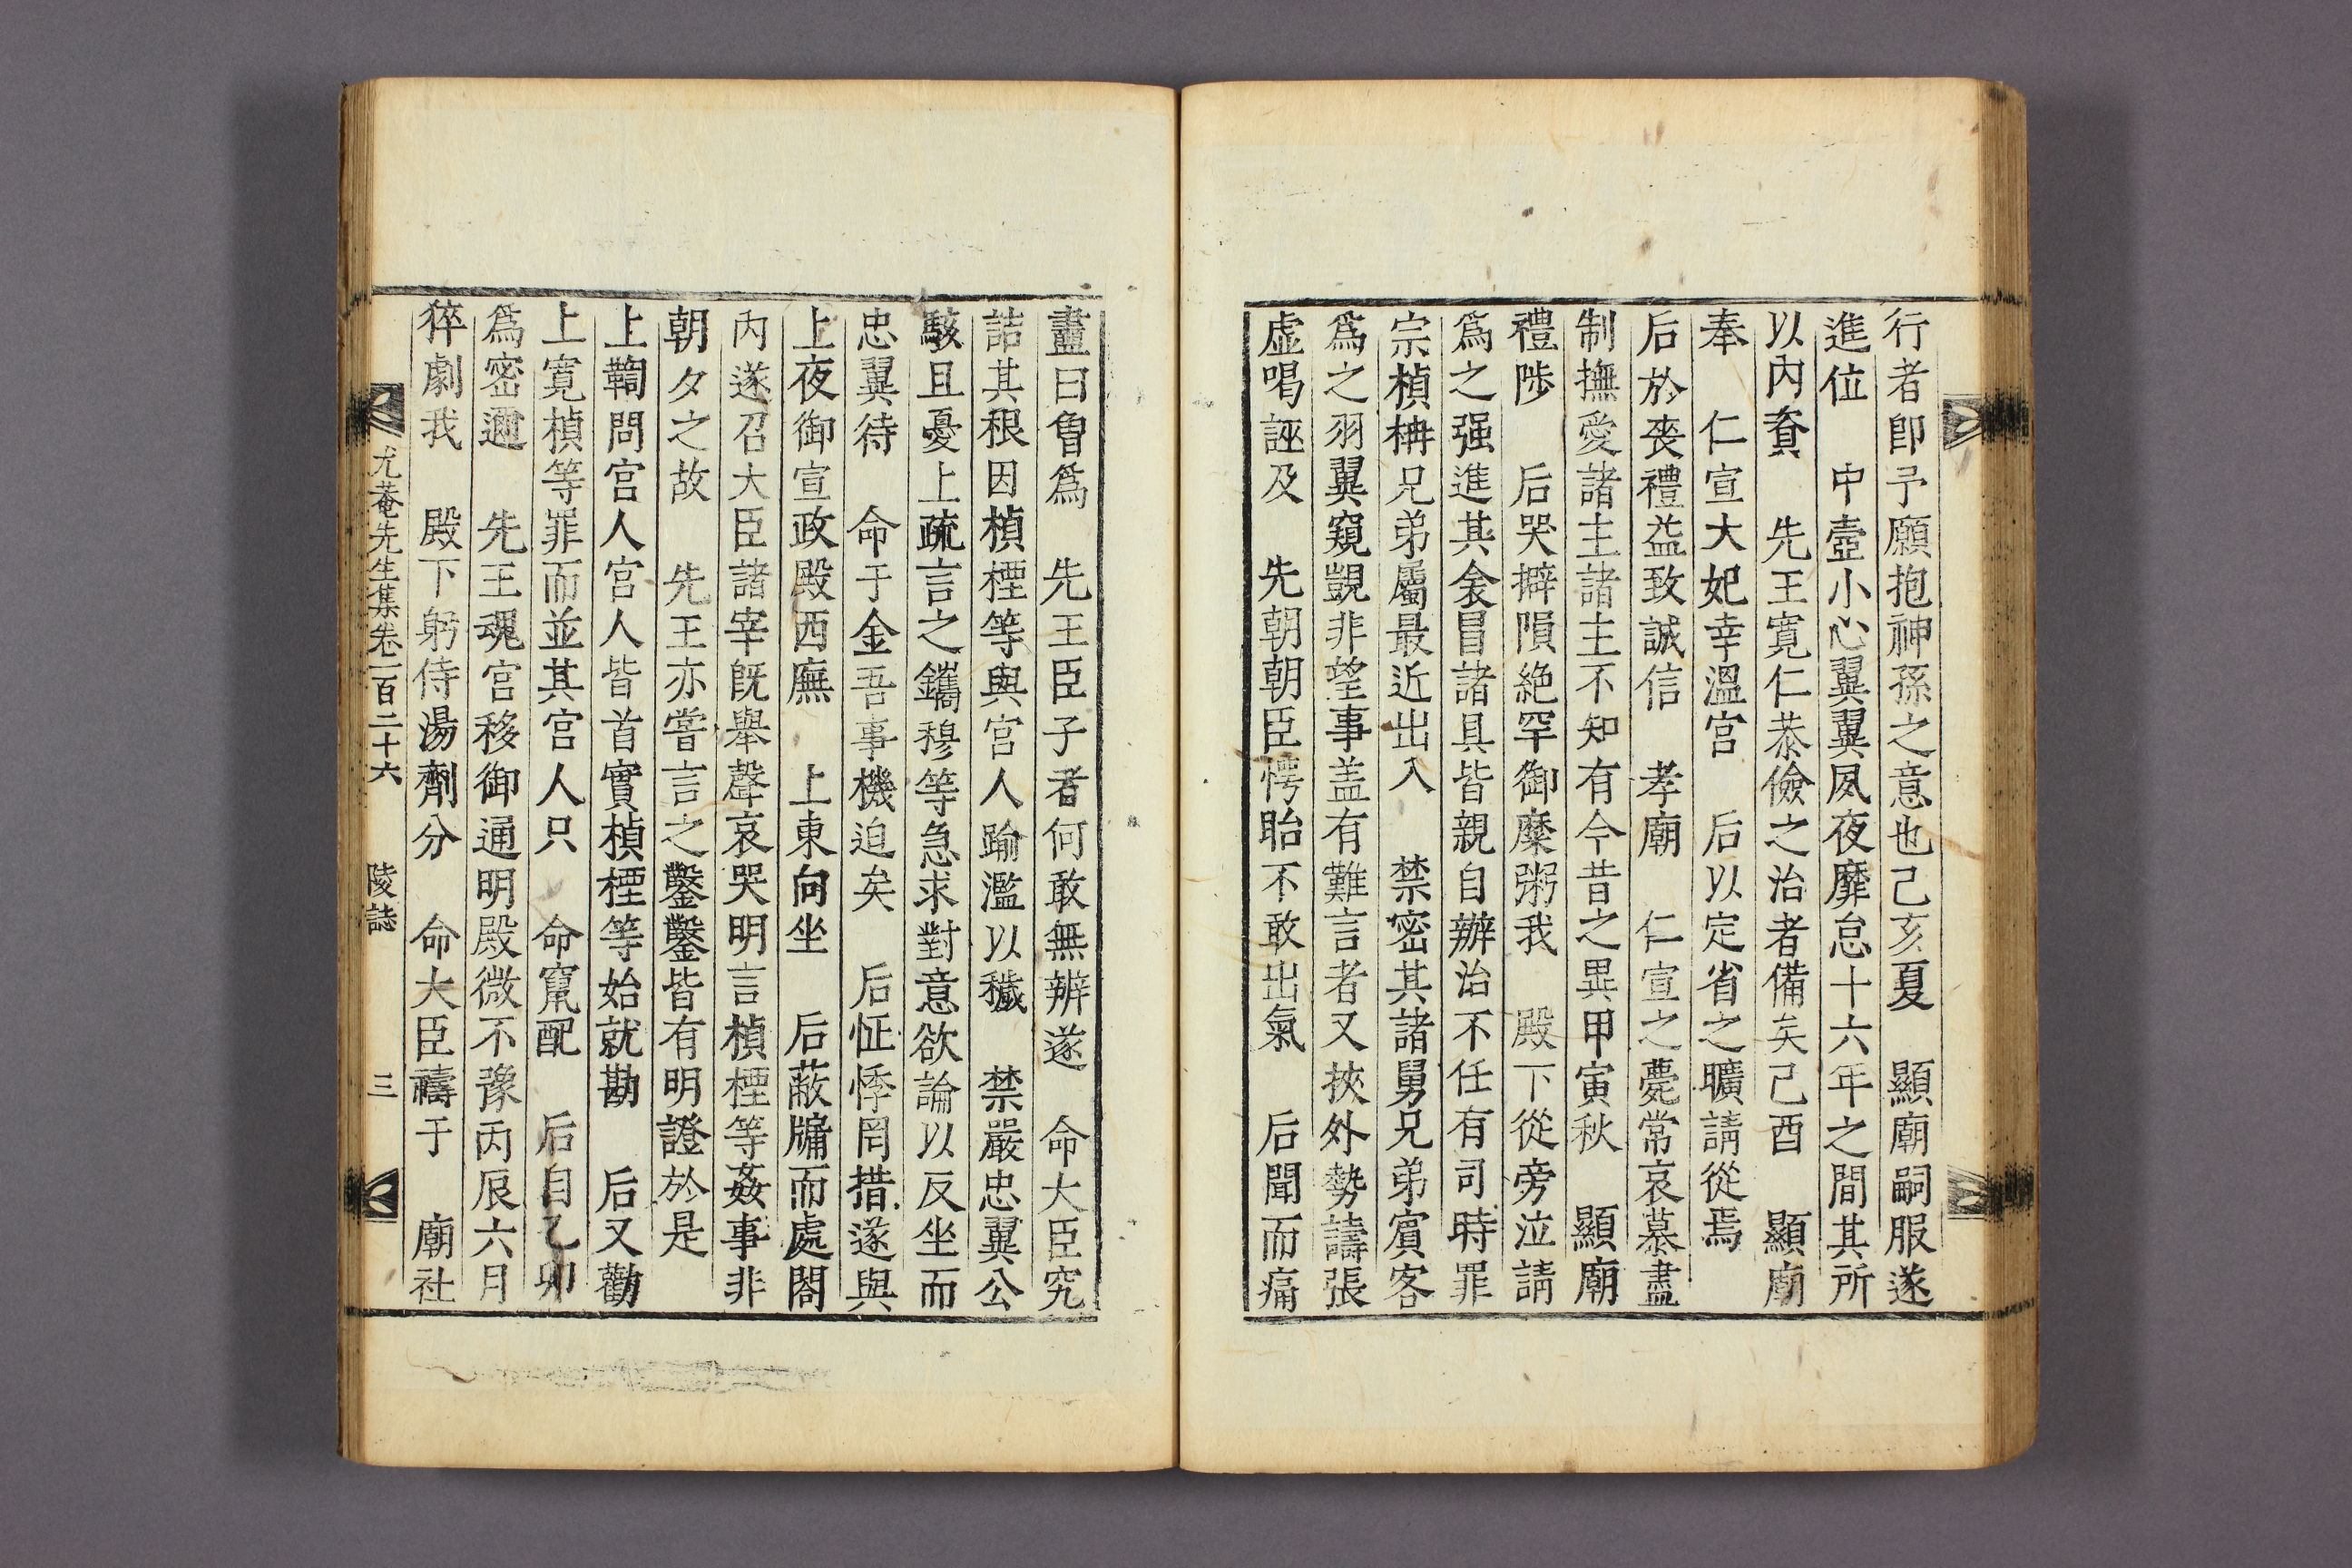 行者卽予願抱神孫之意也己亥夏　顯廟嗣服遂
進位　中壼小心翼翼夙夜靡怠十六年之間其所
以內賚　先王寬仁恭儉之治者備矣己酉　顯廟
奉　仁宣大妃幸溫宮　后以定省之曠請從焉
后於喪禮益致誠信　孝廟　仁宣之薨常哀慕盡
制撫愛諸主諸主不知有今昔之異甲寅秋　顯廟
禮陟　后哭擗隕絶罕御糜粥我　殿下從旁泣請
爲之强進其衾冒諸具皆親自辦治不任有司時罪
宗楨柟兄弟屬最近出入　禁密其諸舅兄弟賓客
爲之羽翼窺覬非望事盖有難言者又挾外勢譸張
虛喝誣及　先朝朝臣愕眙不敢出氣　后聞而痛
盡曰曾爲　先王臣子者何敢無辨遂　命大臣究
詰其根因楨㮒等與宮人踰濫以穢　禁嚴忠翼公
駭且憂上疏言之鑴穆等急求對意欲論以反坐而
忠翼待　命于金吾事機迫矣　后怔悸罔措遂與
上夜御宣政殿西廡　上東向坐　后蔽牖而處閤
內遂召大臣諸宰旣舉聲哀哭明言楨㮒等姦事非
朝夕之故　先王亦嘗言之鑿鑿皆有明證於是
上鞫問宮人宮人皆首實楨㮒等始就勘　后又勸
上寬楨等罪而並其宮人只　命竄配　后自乙卯
爲密邇　先王魂宮移御通明殿微不豫丙辰六月
猝劇我　殿下躬侍湯劑分　命大臣禱于　廟社
尤菴先生集卷一百二十六　陵誌　三